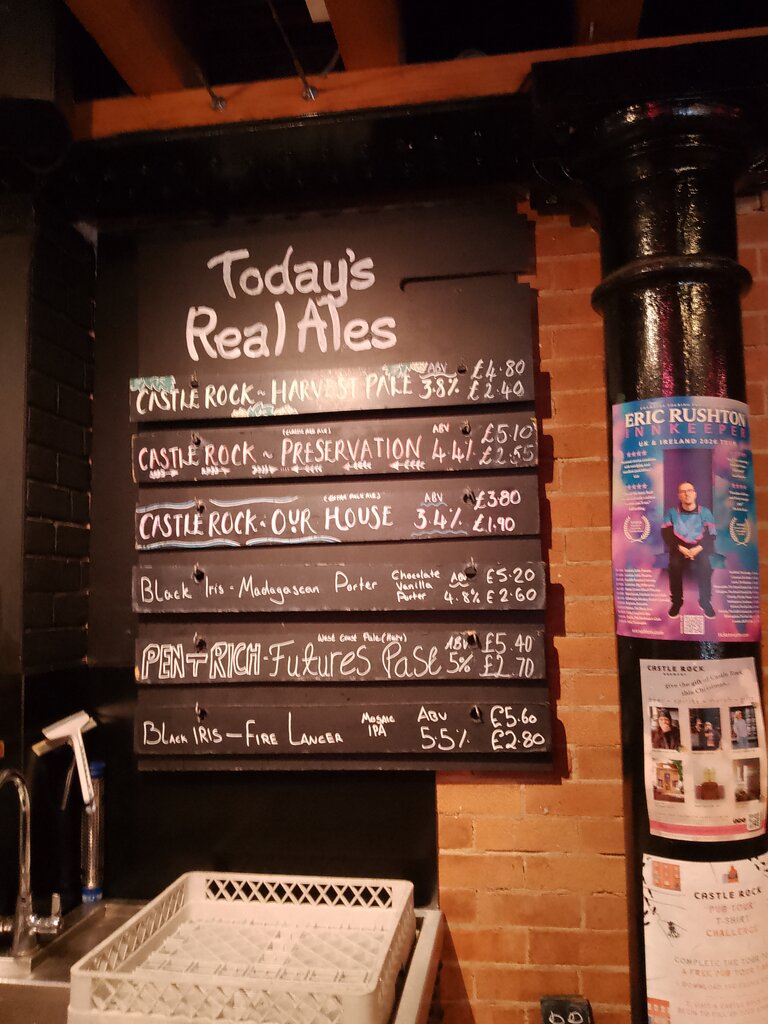 Today's
Real Ales
CASTLE ROCK ~ HARVEST PALE ABV 3.8% £4.80 £2.40
CASTLE ROCK ~ PRESERVATION ABV 4.4% £5.10 £2.55
CASTLE ROCK ~ OUR HOUSE ABV 3.4% £3.80 £1.90
Black Iris - Madagascan Porter Chocolate Vanilla Porter ABV 4.8% £5.20 £2.60
West Coast Pale
PENTRICH - Futures Past ABV 5% £5.40 £2.70
Black IRIS - FIRE LANCER MOSAIC IPA ABV 5.5% £5.60 £2.80
ERIC RUSHTON
INNKEEPER
UK & IRELAND 2026 TOUR
CASTLE ROCK
give the gift of Castle Rock
this Christmas
CASTLE ROCK
PUB TOUR
T-SHIRT
CHALLENGE
COMPLETE THE
A FREE PUB